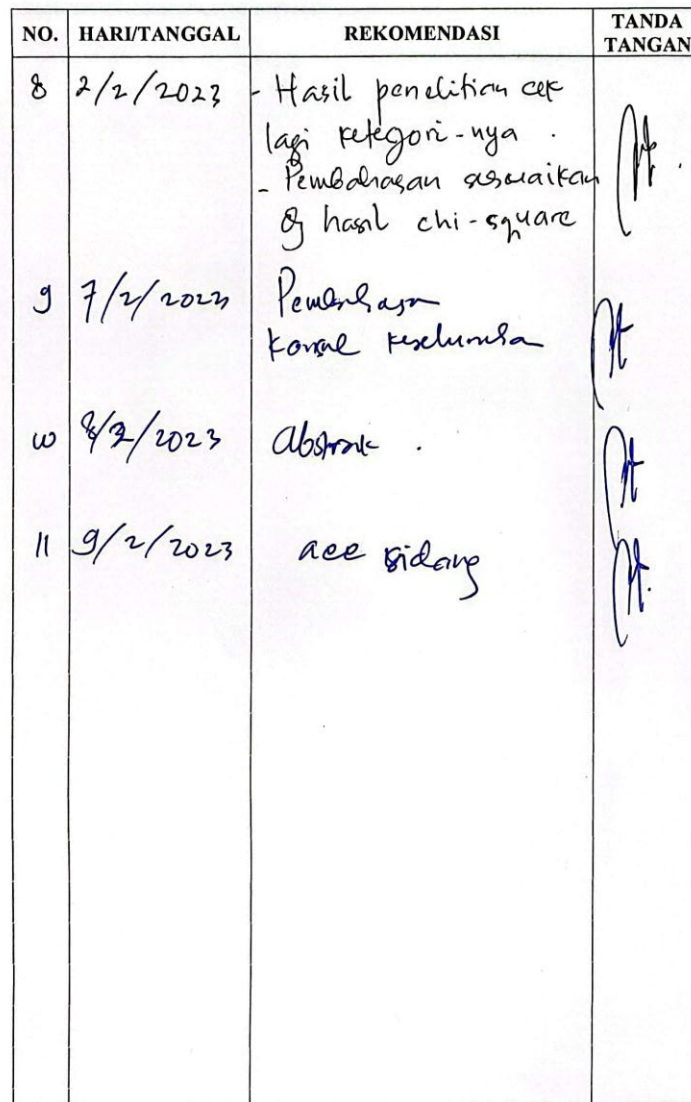 NO. HARI/TANGGAL REKOMENDASI TANDA TANGAN
8 2/2/2023 - Hasil penelitian cek
lagi ketegori-nya .
- Pembahasan sesuaikan
dg hasil chi-square
9 7/2/2023 Pembahasan
konsul keseluruhan
10 8/2/2023 abstrak .
11 9/2/2023 acc sidang